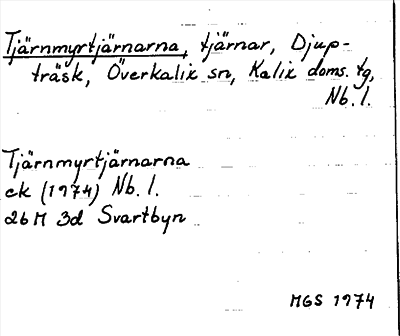 Tjärnmyrtjärnarna, tjärnar, Djup-
träsk, Överkalix sn, Kalix doms. tg,
Nb. l.
Tjärnmyrtjärnarna
ek (1974) Nb. l.
26 M 3d Svartbyn
MGS 1974